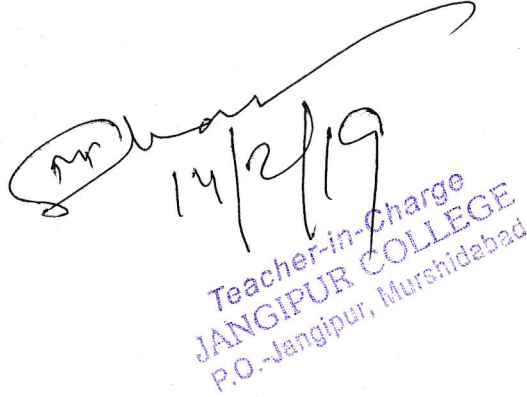 14/2/19
Teacher-in-Charge
JANGIPUR COLLEGE
P.O.-Jangipur, Murshidabad